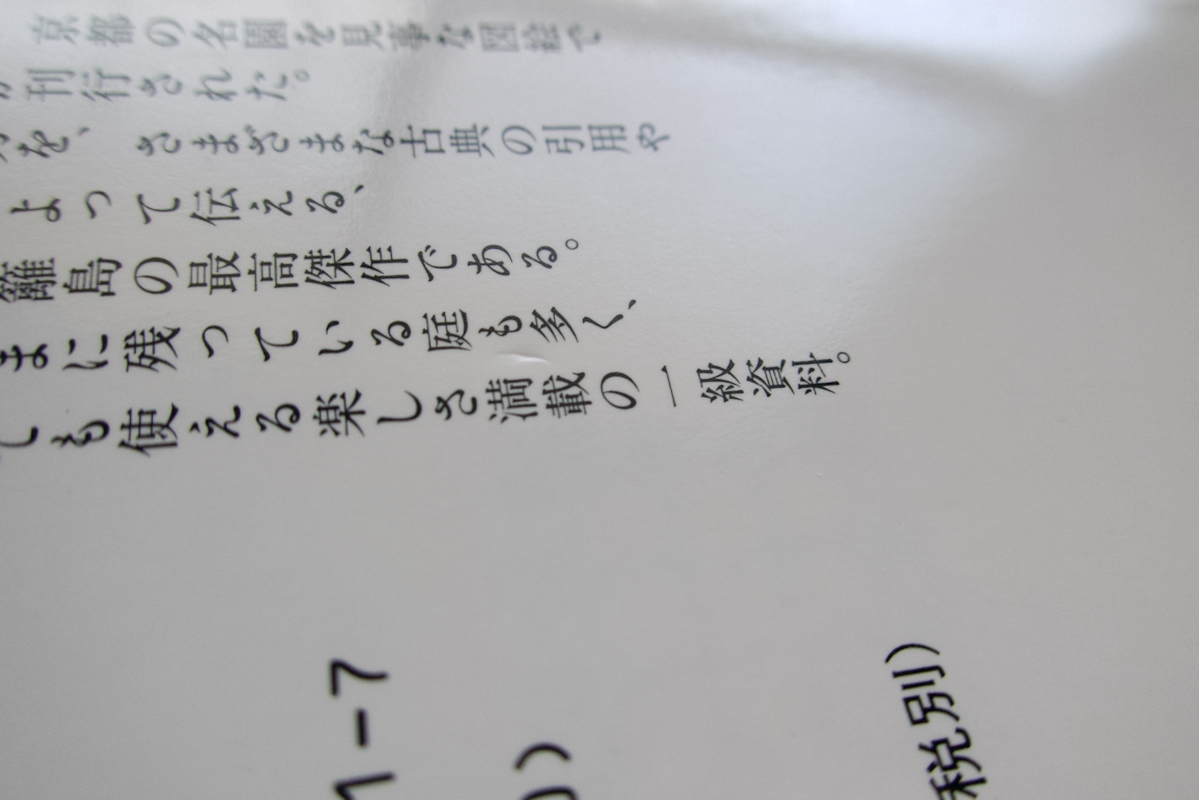 京都の名園を見事な図絵で
刊行された。
を、さまざまな古典の引用や
よって伝える、
籬島の最高傑作である。
まに残っている庭も多く、
しても使える楽しさ満載の一級資料。
1-7
)
税別)